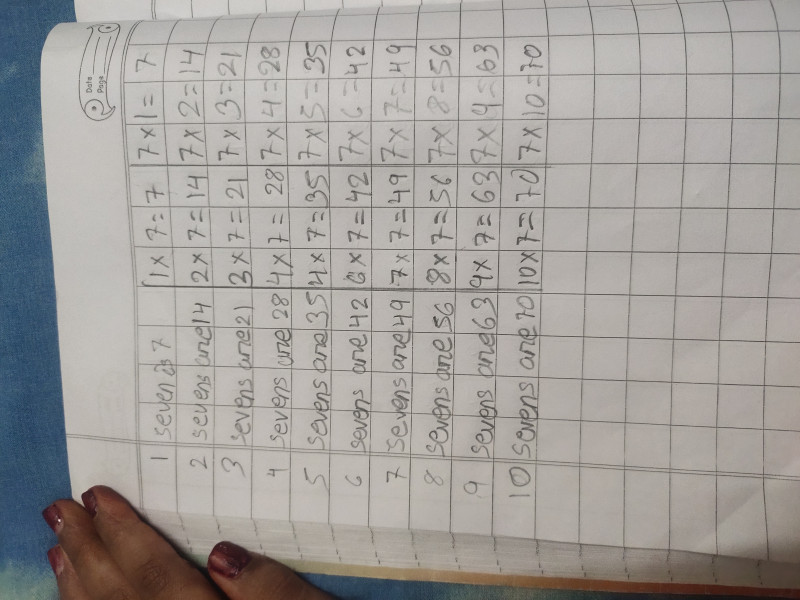 Date
Page
1 seven is 7 1 x 7 = 7 7 x 1 = 7
2 sevens are 14 2 x 7 = 14 7 x 2 = 14
3 sevens are 21 3 x 7 = 21 7 x 3 = 21
4 sevens are 28 4 x 7 = 28 7 x 4 = 28
5 sevens are 35 4 x 7 = 35 7 x 5 = 35
6 sevens are 42 6 x 7 = 42 7 x 6 = 42
7 sevens are 49 7 x 7 = 49 7 x 7 = 49
8 sevens are 56 8 x 7 = 56 7 x 8 = 56
9 sevens are 63 9 x 7 = 63 7 x 9 = 63
10 sevens are 70 10 x 7 = 70 7 x 10 = 70